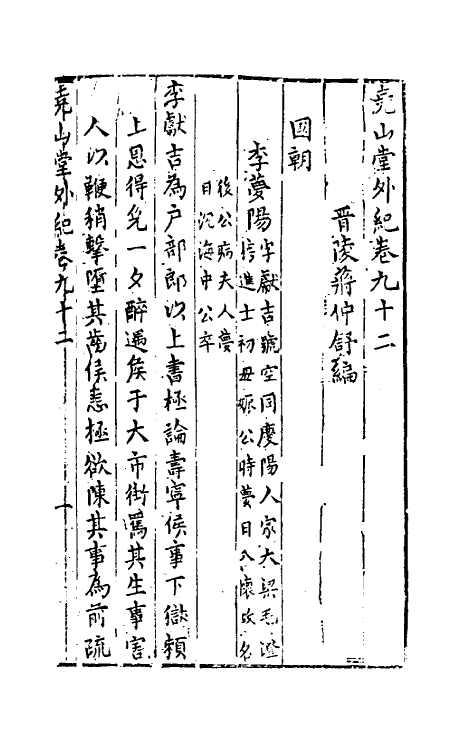 堯山堂外紀卷九十二
晋陵蔣仲舒編
國朝
李夢陽字獻吉號空同慶陽人家大梁毛澄
榜進士初母娠公時夢日入懷故名
後公病夫人夢
日沉海中公卒
李獻吉為户部郎以上書極論壽寧侯事下獄賴
上恩得免一夕醉遇侯于大市街罵其生事害
人以鞭稍擊墮其齒侯恚極欲陳其事為前疏
堯山堂外紀卷九十二 一